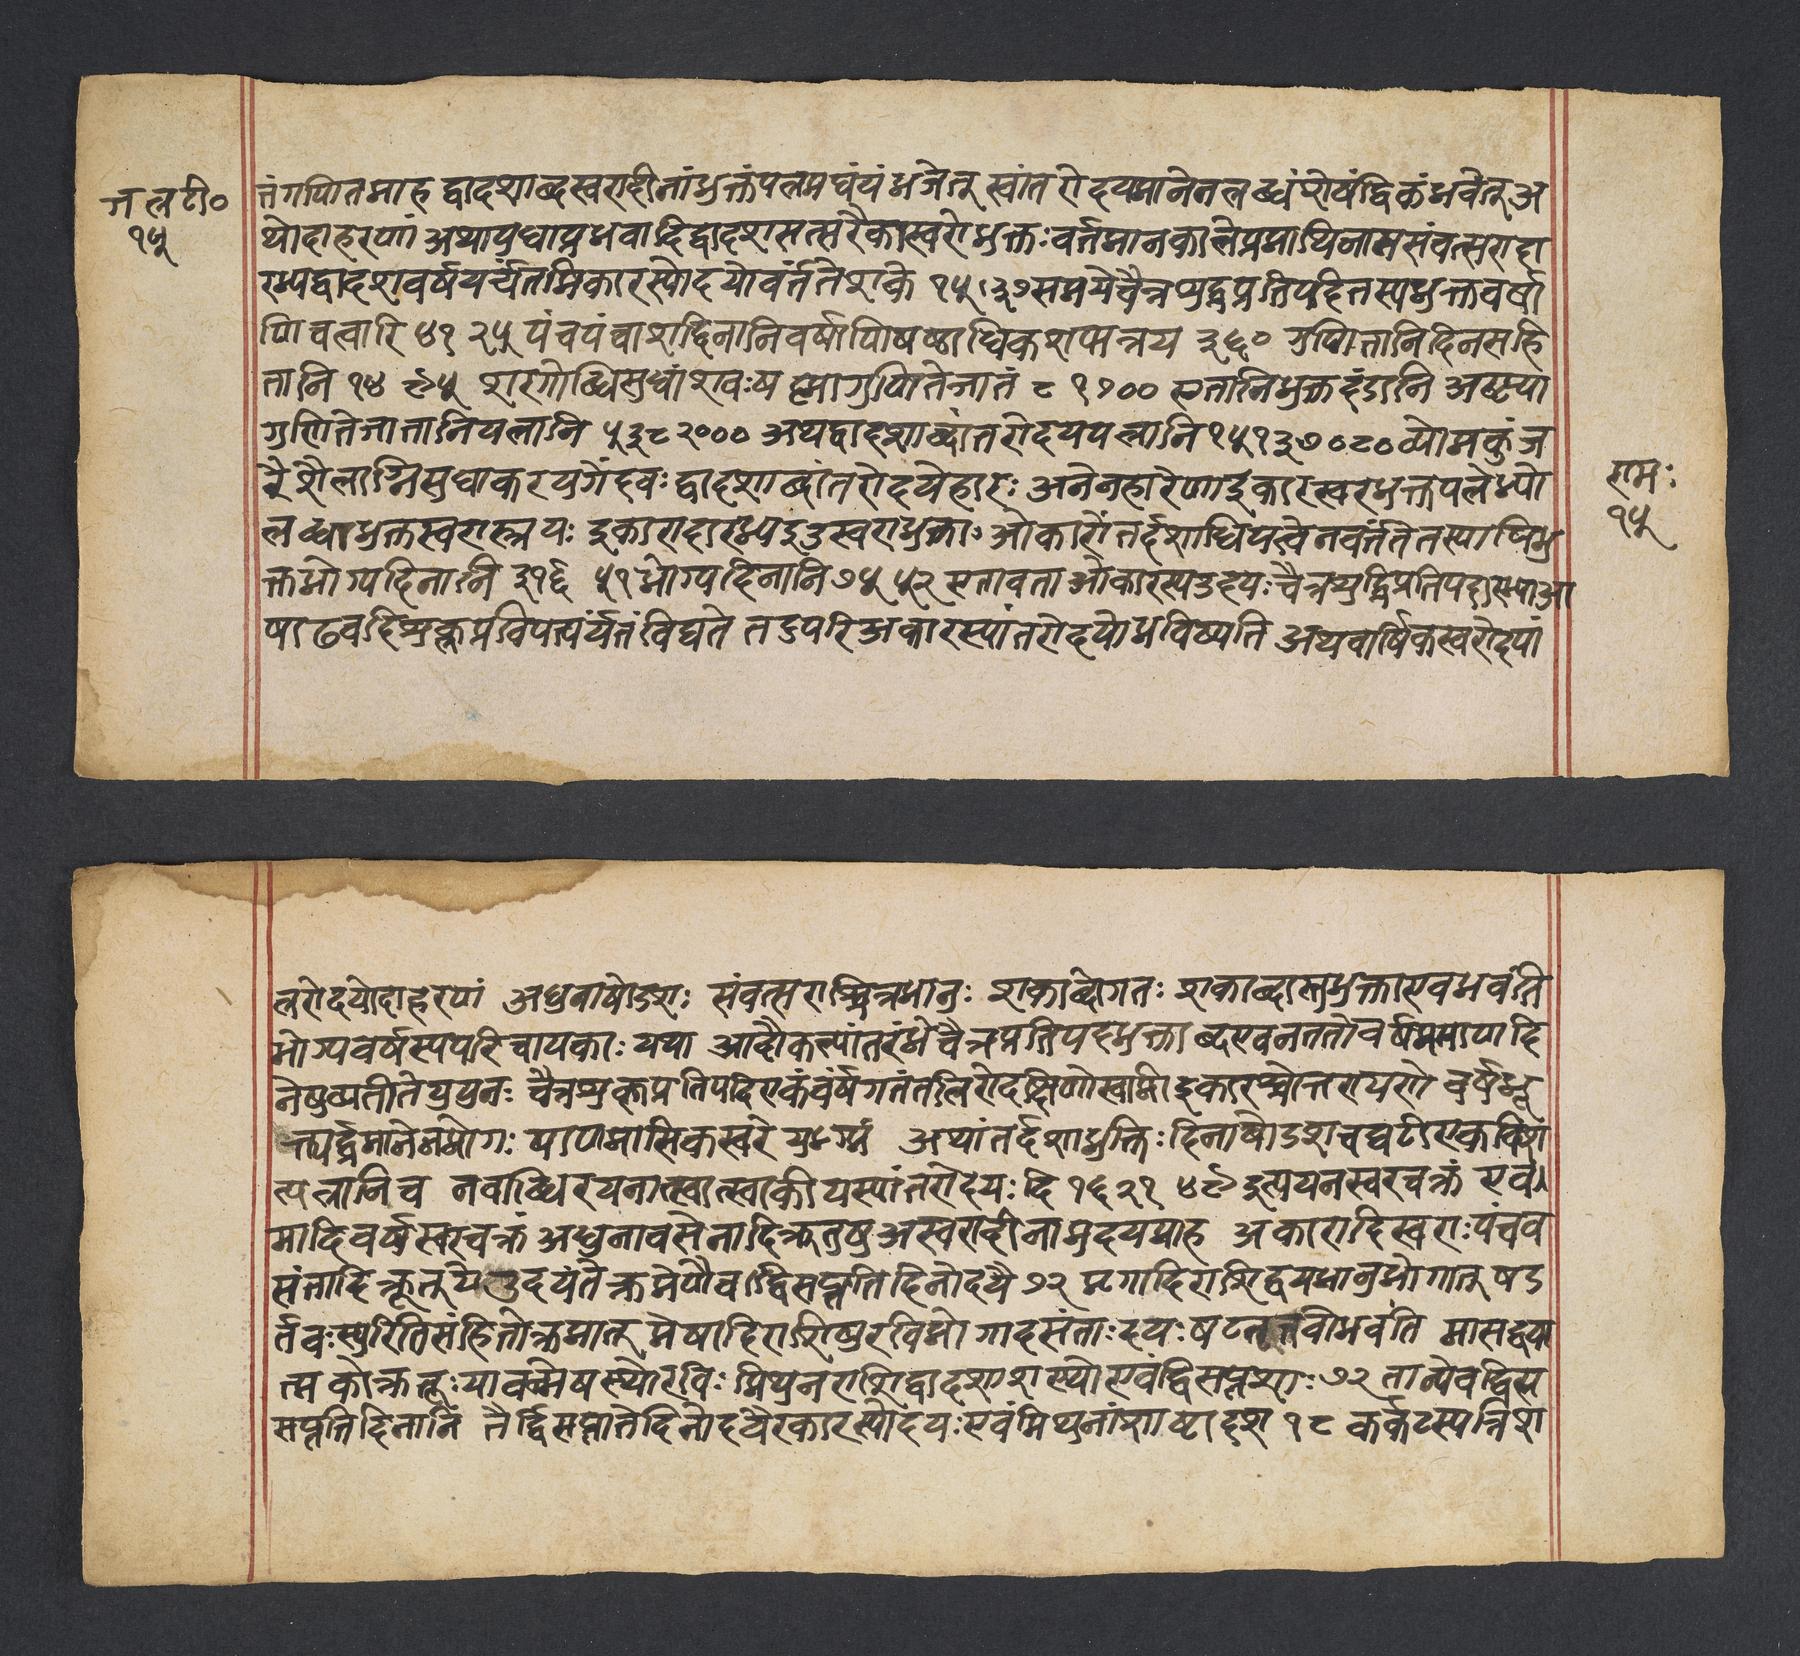 ज लटी०
१५
त्तंगणितमाह द्वादशाब्दस्वरादीनांभुक्तंपलमघ्यंयंभजेत् स्वांतरोदयमानेनलब्धंशेषंद्विकंभवेत् अ
थोदाहरणं अथायुधाप्रभवादिद्वादशसत्सरैकास्वरोभुक्तः वर्त्तमानकालेप्रमाथिनामसंवत्सरादा
रभ्यद्वादशवर्षपर्यंतमिकारस्योदयोवर्त्ततेशके १५।३७ समयेचैत्रशुद्धप्रतिपद्दिनस्यभुक्तवर्षा
णिचत्वारि ४१ २५ पंचपंचाशद्दिनानिवर्षाणिषष्ठाधिकशतत्रय ३६० गुणितानिदिनसहि
तानि १४ ९५ शरगोब्धिसुधांशवःष गुणितेजातं ८ ९७०० एतानिभुक्तदंडानि अष्टया
गुणितेजातानिपलानि ५३८२००० अथद्वादशाब्दांतरोदयपलानि १५१३७०८० व्योमकुंज
रैशैलाग्निसुधाकरयुगेंदवः द्वादशाब्दांतरोदयेहारः अनेनहारेणाइकारस्वरभुक्तपलेभ्यो
लब्धाभुक्तस्वरास्त्रयः इकारादारभ्यइउस्वराभुक्ताः ओकारोंतर्दशाधिपत्वेनवर्त्ततेतस्यापिभु
क्तभोग्यदिनानि ३१६ ५१ भोग्यदिनानि ७५ ५२ एतावताओकारस्यउदयः चैत्रशुद्धिप्रतिपदास्याआ
षाढवदिशुक्लप्रविपत्पर्यंतंविद्यते तउपरिअकारस्यांतरोदयोभविष्यति अथवार्षिकस्वरोदयां
रामः
१५
त्तरोदयोदाहरणं अधुनाषोडशः संवत्सराश्चित्रभानुः शकाब्दोगतः शकाब्दास्तुभुक्ताएवभवंति
भोग्यवर्षस्यपरिचायकाः यथा आदौकल्पांतरंभेचैत्रप्रतिपदभुक्ताब्दएवनततोवर्षप्रमाणदि
नेषुव्यतीतेषुपुनः चैत्रशुक्लप्रतिपदिएकंवर्षगतंतलिरोदक्षिणोस्वाभीइकारश्चोत्तरायणे वर्षभु
क्त्यर्द्धमानेनभोगः षाण्मासिकस्वरे अथांतर्दशाभुक्तिः दिनाषोडशचघटीएकविंश
त्पलानिच नवाब्धिरयनात्स्वात्स्वाकीयस्यांतरोदयः दि १६२१ ४९ इत्ययनस्वरचक्रं एवं
मादिवर्षस्वरचक्रं अधुनावसंनादिऋतुषुअस्वरादीनामुदयमाह अकारादिस्वराःपंचव
संतादिऋतूत्र उदयंतेक्रमेणैव द्विसप्ततिदिनोदयै ७२ मृगादिराशिद्वयभानुभोगात् षड
र्तवःस्युरितिसंहितोक्रमात् मेषादिराशिषुरविभोगादसंताः दयः षट भवंति मासद्वया
त्मकोऋतूःयावन्मेषस्थोरविः मिथुनराशिद्वादशांशस्थोएवंद्विसप्तशाः ७२ तान्येवद्विस
सप्ततिदिनानि तैर्द्विसप्ततिदिनोदयैरकारस्योदयः एवंमिथुनांशाष्टादश १८ कर्कटस्यत्रिंशा